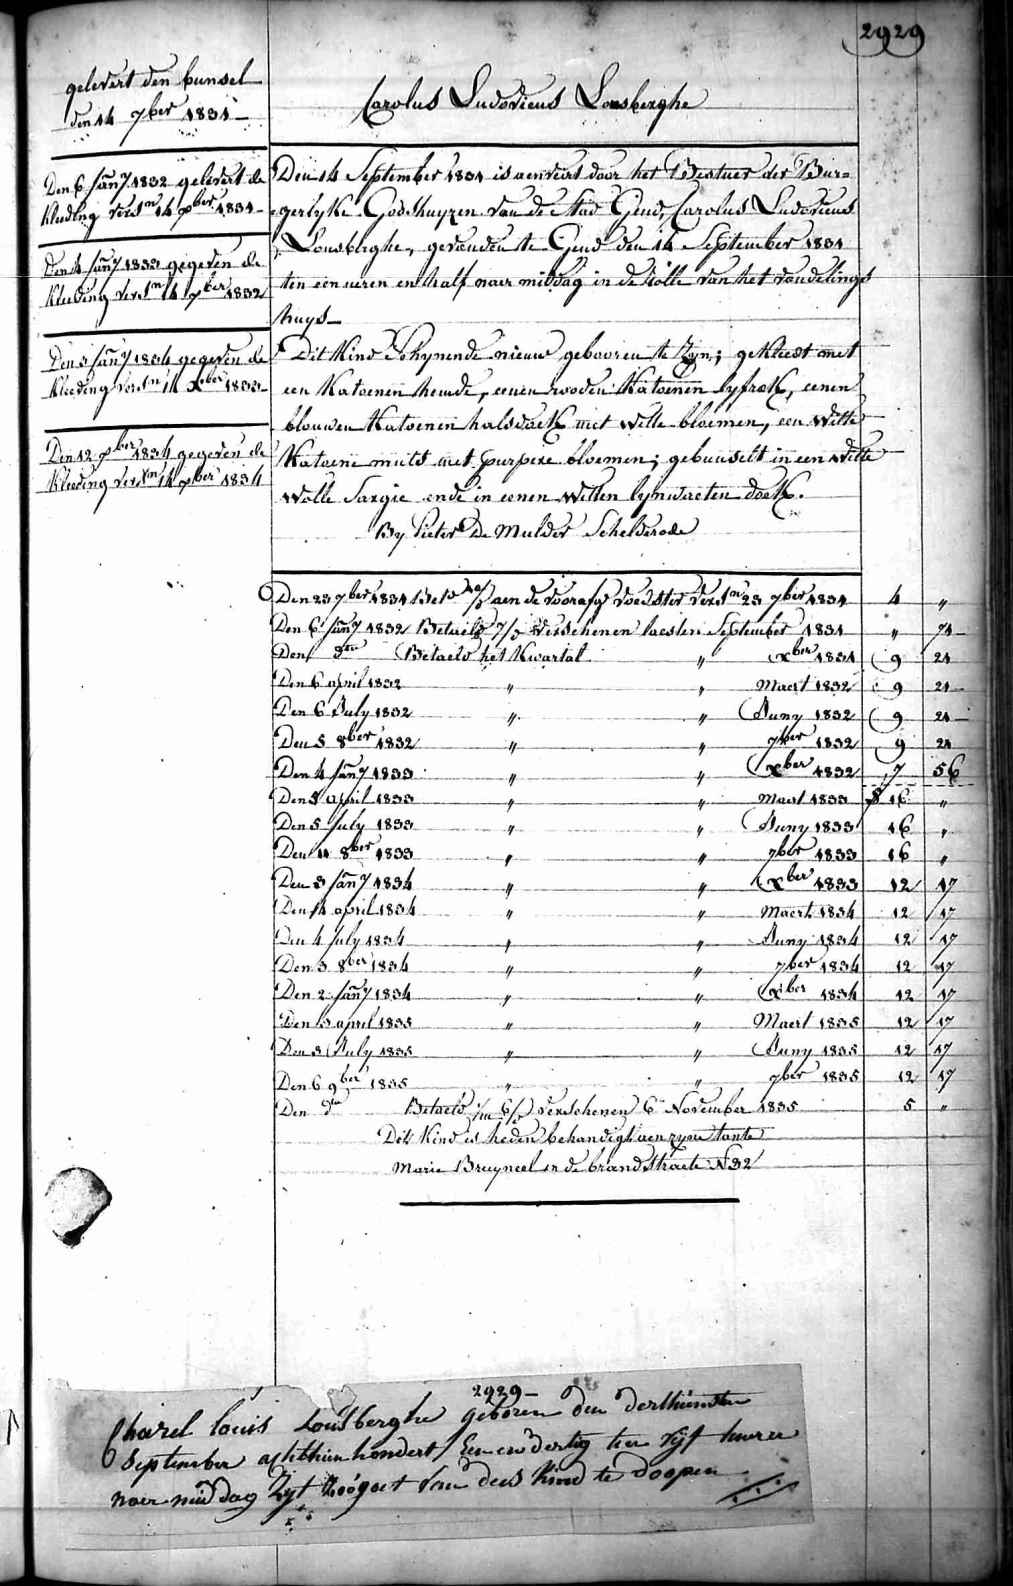 2929
gelevert den bunsel
den 14 7ber 1831
Den 6 Jany 1832 gelevert de
kleding versn 14 xber 1831
Den 4 Jany 1833 gegeven de
kleeding versn 14 7ber 1832
Den 3 Jany 1834 gegeven de
kleeding versn 14 xber 1833
Den 12 xber 1834 gegeven de
kleeding versn 14 7ber 1834
Carolus Ludovicus Lousberghe
Den 14 September 1831 is aenveirt door het Bestuer der Bur=
gerlyke Godshuyzen van de stad Gend, Carolus Ludovicus
Lousberghe, gevonden te Gend den 14 September 1831
ten een ueren en half naer middag in de Rolle van het vondelings
huys
Dit Kind schynende nieuw gebooren te zyn; gekleedt met
een Katoenen hemde, eenen rooden Katoenen lyfrok, eenen
blouwen Katoenen halsdoek met witte bloemen, een witte
Katoene muts met purpere bloemen; gebunselt in een witte
wolle Sargie ende in eenen witten lynwaeten doek.
By Pieter De Mulder Schelderode
Den 23 7ber 1831 Bet aen de voorafg voedster versn 23 7ber 1831 4 "
Den 6 Jany 1832 Betaeld 7/ verschenen laesten September 1831 " 74
Den dn Betaeld het Kwartal " xber 1831 9 21
Den 6 april 1832 " " Maert 1832 9 21
Den 6 July 1832 " " Juny 1832 9 21
Den 5 8ber 1832 " " 7ber 1832 9 21
Den 4 Jany 1833 " " xber 1832 7 56
Den 5 april 1833 " " Maert 1833 16 "
Den 5 July 1833 " " Juny 1833 16 "
Den 11 8ber 1833 " " 7ber 1833 16 "
Den 3 Jany 1834 " " xber 1833 12 17
Den 4 april 1834 " " Maert 1834 12 17
Den 4 July 1834 " " Juny 1834 12 17
Den 3 8ber 1834 " " 7ber 1834 12 17
Den 2 Jany 1834 " " xber 1834 12 17
Den 3 april 1835 " " Maert 1835 12 17
Den 3 July 1835 " " Juny 1835 12 17
Den 6 9ber 1835 " " 7ber 1835 12 17
Den dn Betaeld 1/m 6/ verschenen 6 November 1835 5 "
Dit Kind is heden behandigt aen zyne tante
Marie Bruyneel in de brandstraete N 32
2929
Charel louis Lousberghe geboren den derthiensten
September achthien hondert Een en dertig ten vyf hueren
naer mid dag Zyt Zoo goet van dees Kind te Doopen